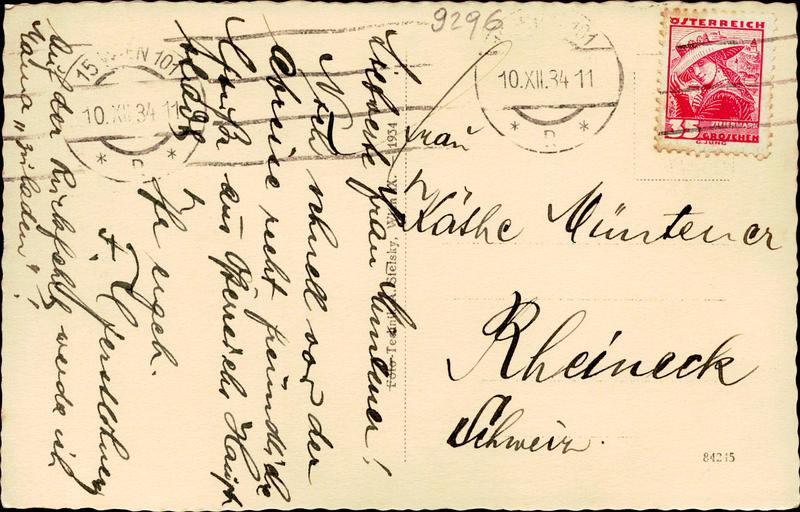 9296
15 WIEN 101
10.XII.34 11
* C *
10.XII.34 11
* D *
ÖSTERREICH
35
GROSCHEN
G. JUNG
Liebwerte Frau Müntener!
Noch schnell vor der
Abreise recht freundliche
Grüße aus Österreichs Haupt
stadt
Ihr ergeb.
F.
Auf der Rückfahrt werde ich
Mama „einladen"!
Frau
Käthe Müntener
Rheineck
Schweiz.
Sielsky, Wien 1934
84215